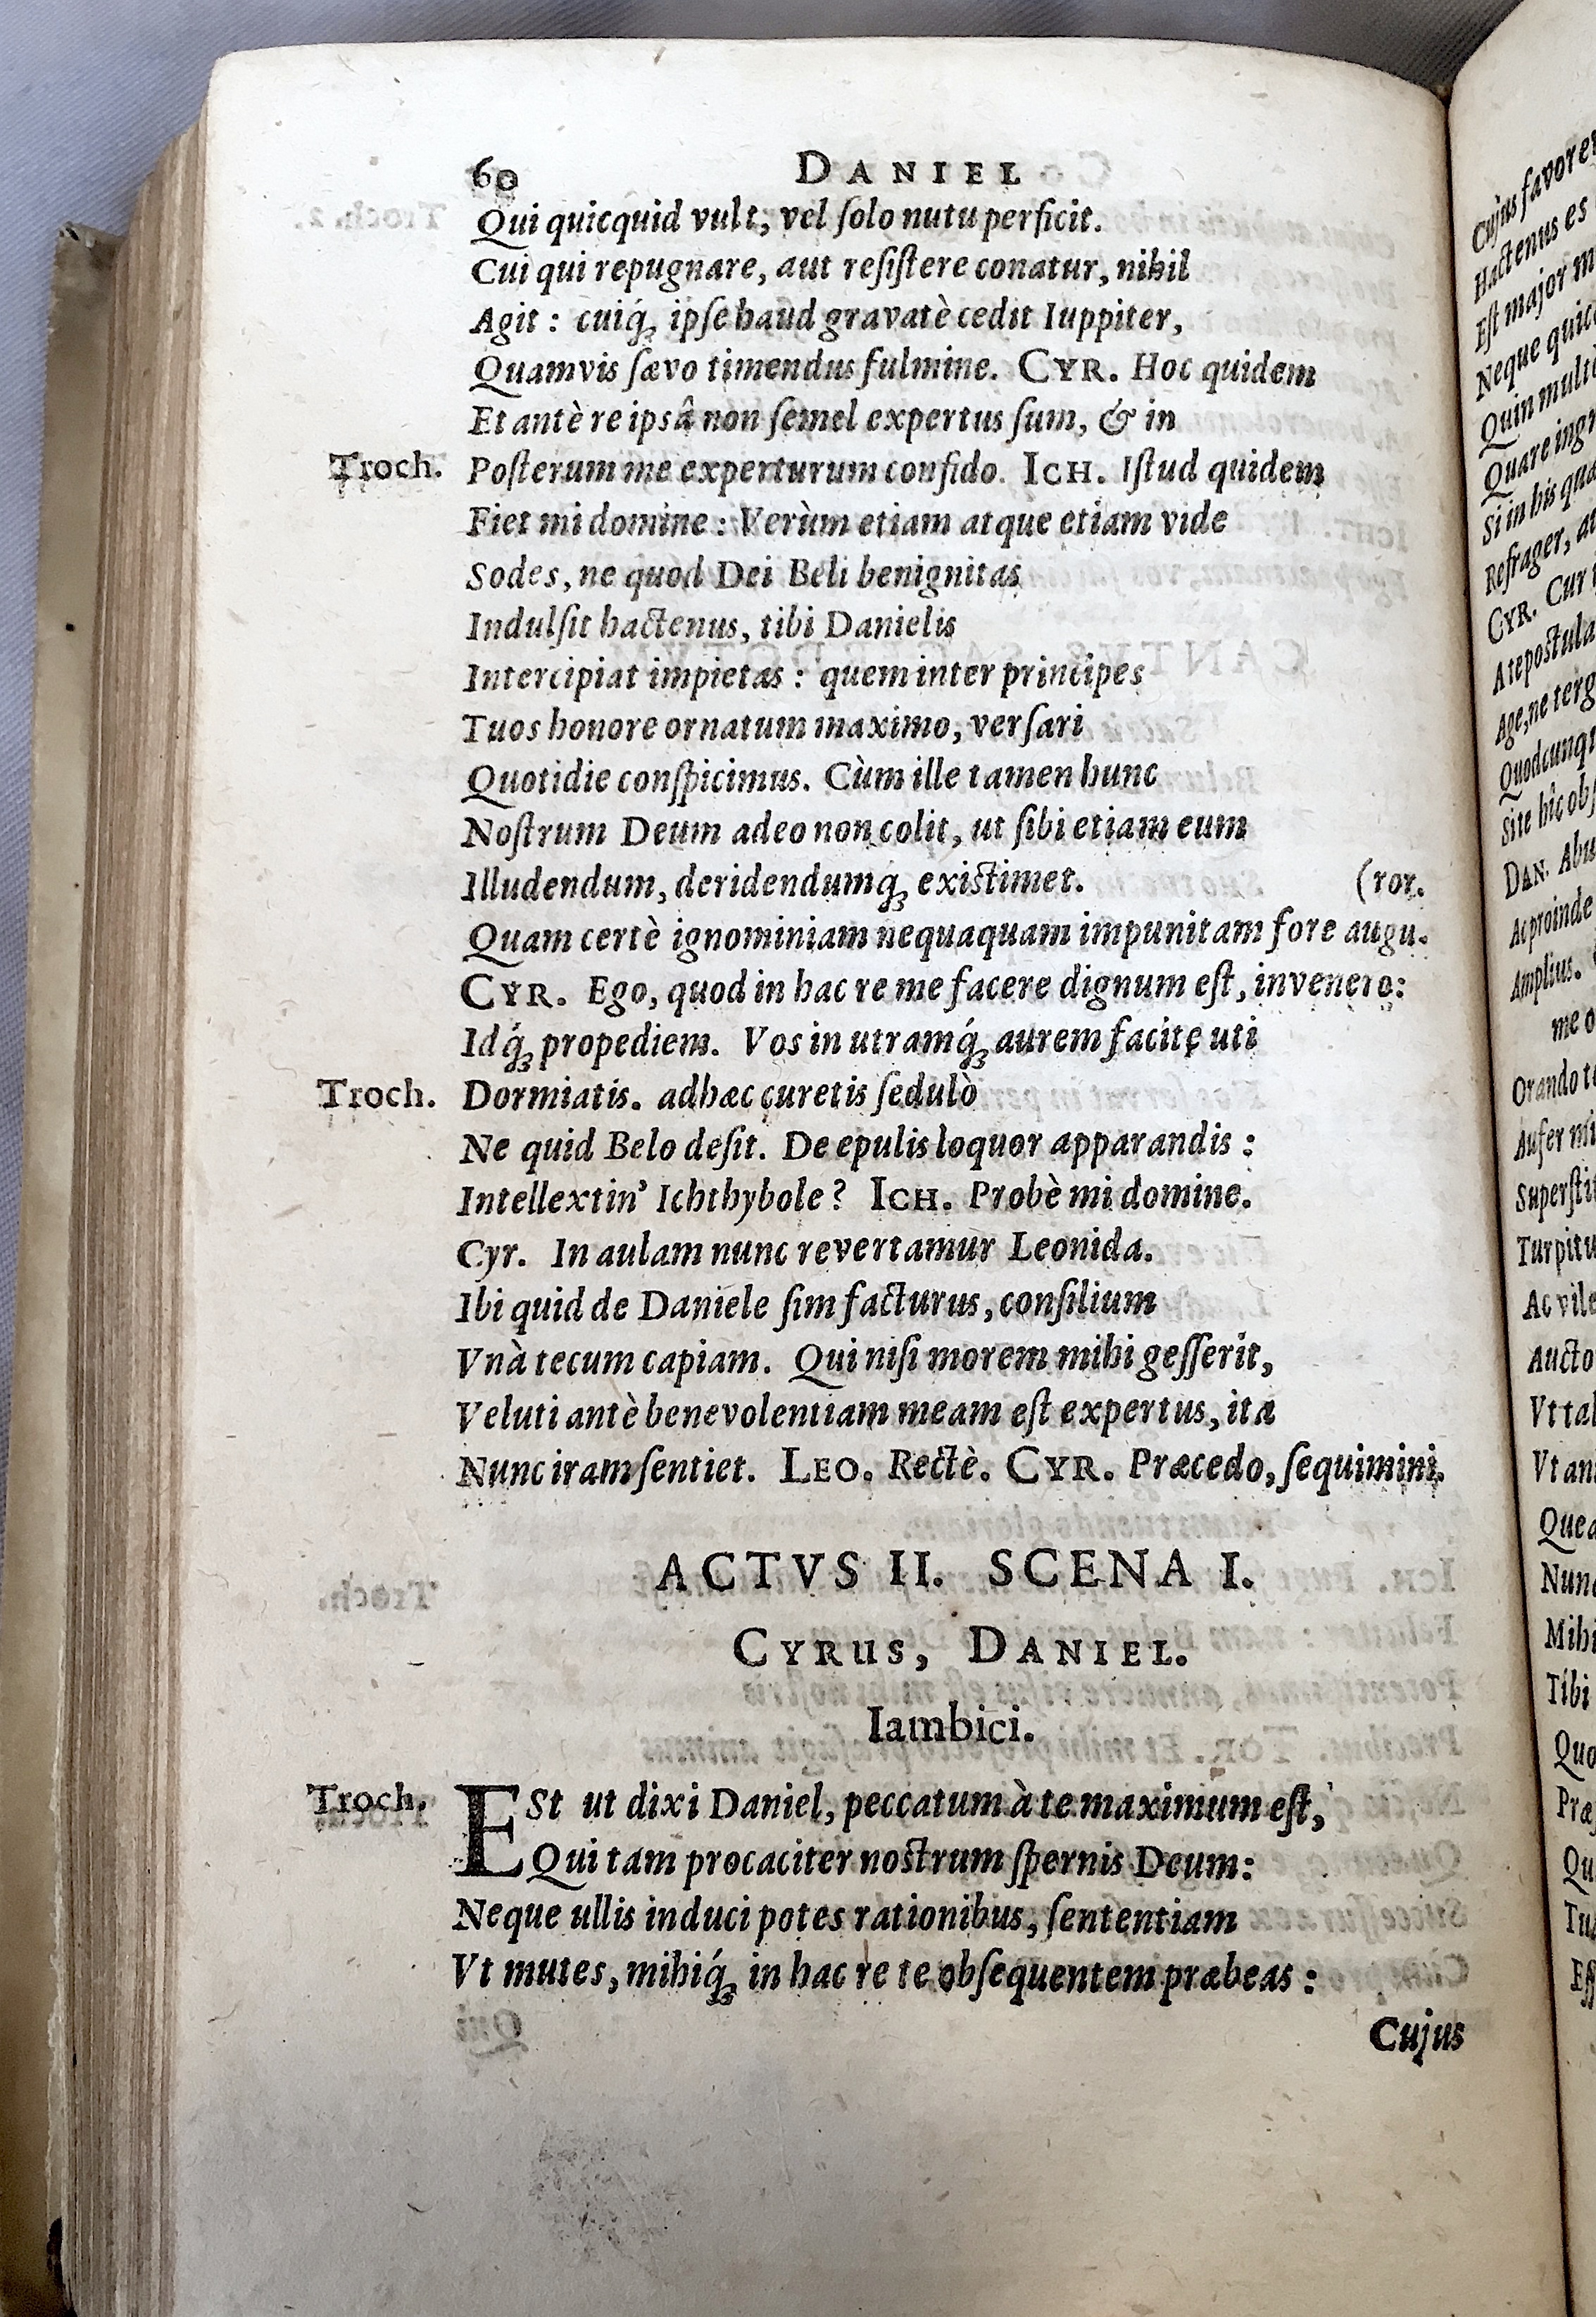 60 DANIEL
Qui quicquid vult, vel ſolo nutu perficit.
Cui qui repugnare, aut reſiſtere conatur, nihil
Agit : cuiq́; ipſe haud gravatè cedit Iuppiter,
Quamvis ſævo timendus fulmine. CYR. Hoc quidem
Et antè re ipsâ non ſemel expertus ſum, & in
Troch. Poſterum me experturum confido. ICH. Iſtud quidem
Fiet mi domine : Verùm etiam atque etiam vide
Sodes, ne quod Dei Beli benignitas
Indulſit hactenus, tibi Danielis
Intercipiat impietas : quem inter principes
Tuos honore ornatum maximo, verſari
Quotidie conſpicimus. Cùm ille tamen hunc
Noſtrum Deum adeo non colit, ut ſibi etiam eum
Illudendum, deridendumq́; existimet. (ror.
Quam certè ignominiam nequaquam impunitam fore augu-
CYR. Ego, quod in hac re me facere dignum eſt, invenero:
Idq́; propediem. Vos in utramq́; aurem facite uti
Troch. Dormiatis. adhæc curetis ſedulò
Ne quid Belo deſit. De epulis loquor apparandis :
Intellextin' Ichthybole? ICH. Probè mi domine.
Cyr. In aulam nunc revertamur Leonida.
Ibi quid de Daniele ſim facturus, conſilium
Vnà tecum capiam. Qui niſi morem mihi geſſerit,
Veluti antè benevolentiam meam eſt expertus, ita
Nunc iram ſentiet. LEO. Rectè. CYR. Præcedo, ſequimini.
ACTVS II. SCENA I.
CYRUS, DANIEL.
Iambici.
Troch. ESt ut dixi Daniel, peccatum à te maximum eſt,
Qui tam procaciter nostrum ſpernis Deum:
Neque ullis induci potes rationibus, ſententiam
Vt mutes, mihiq́; in hac re te obſequentem præbeas :
Cujus
Cujus
Hactenus es
Eſt major
Neque
Quin
Quare
Si in his
Refrager,
CYR. Cur
A te
Age, ne
Quodcunq
Site hîc
DAN.
Ac proinde
Amplius.
me
Orando
Aufer
Turpitu
Ac vile
Aucto
Vt tal
Vt
Nunc
Mihi
Tibi
Quo
Præ
Qu